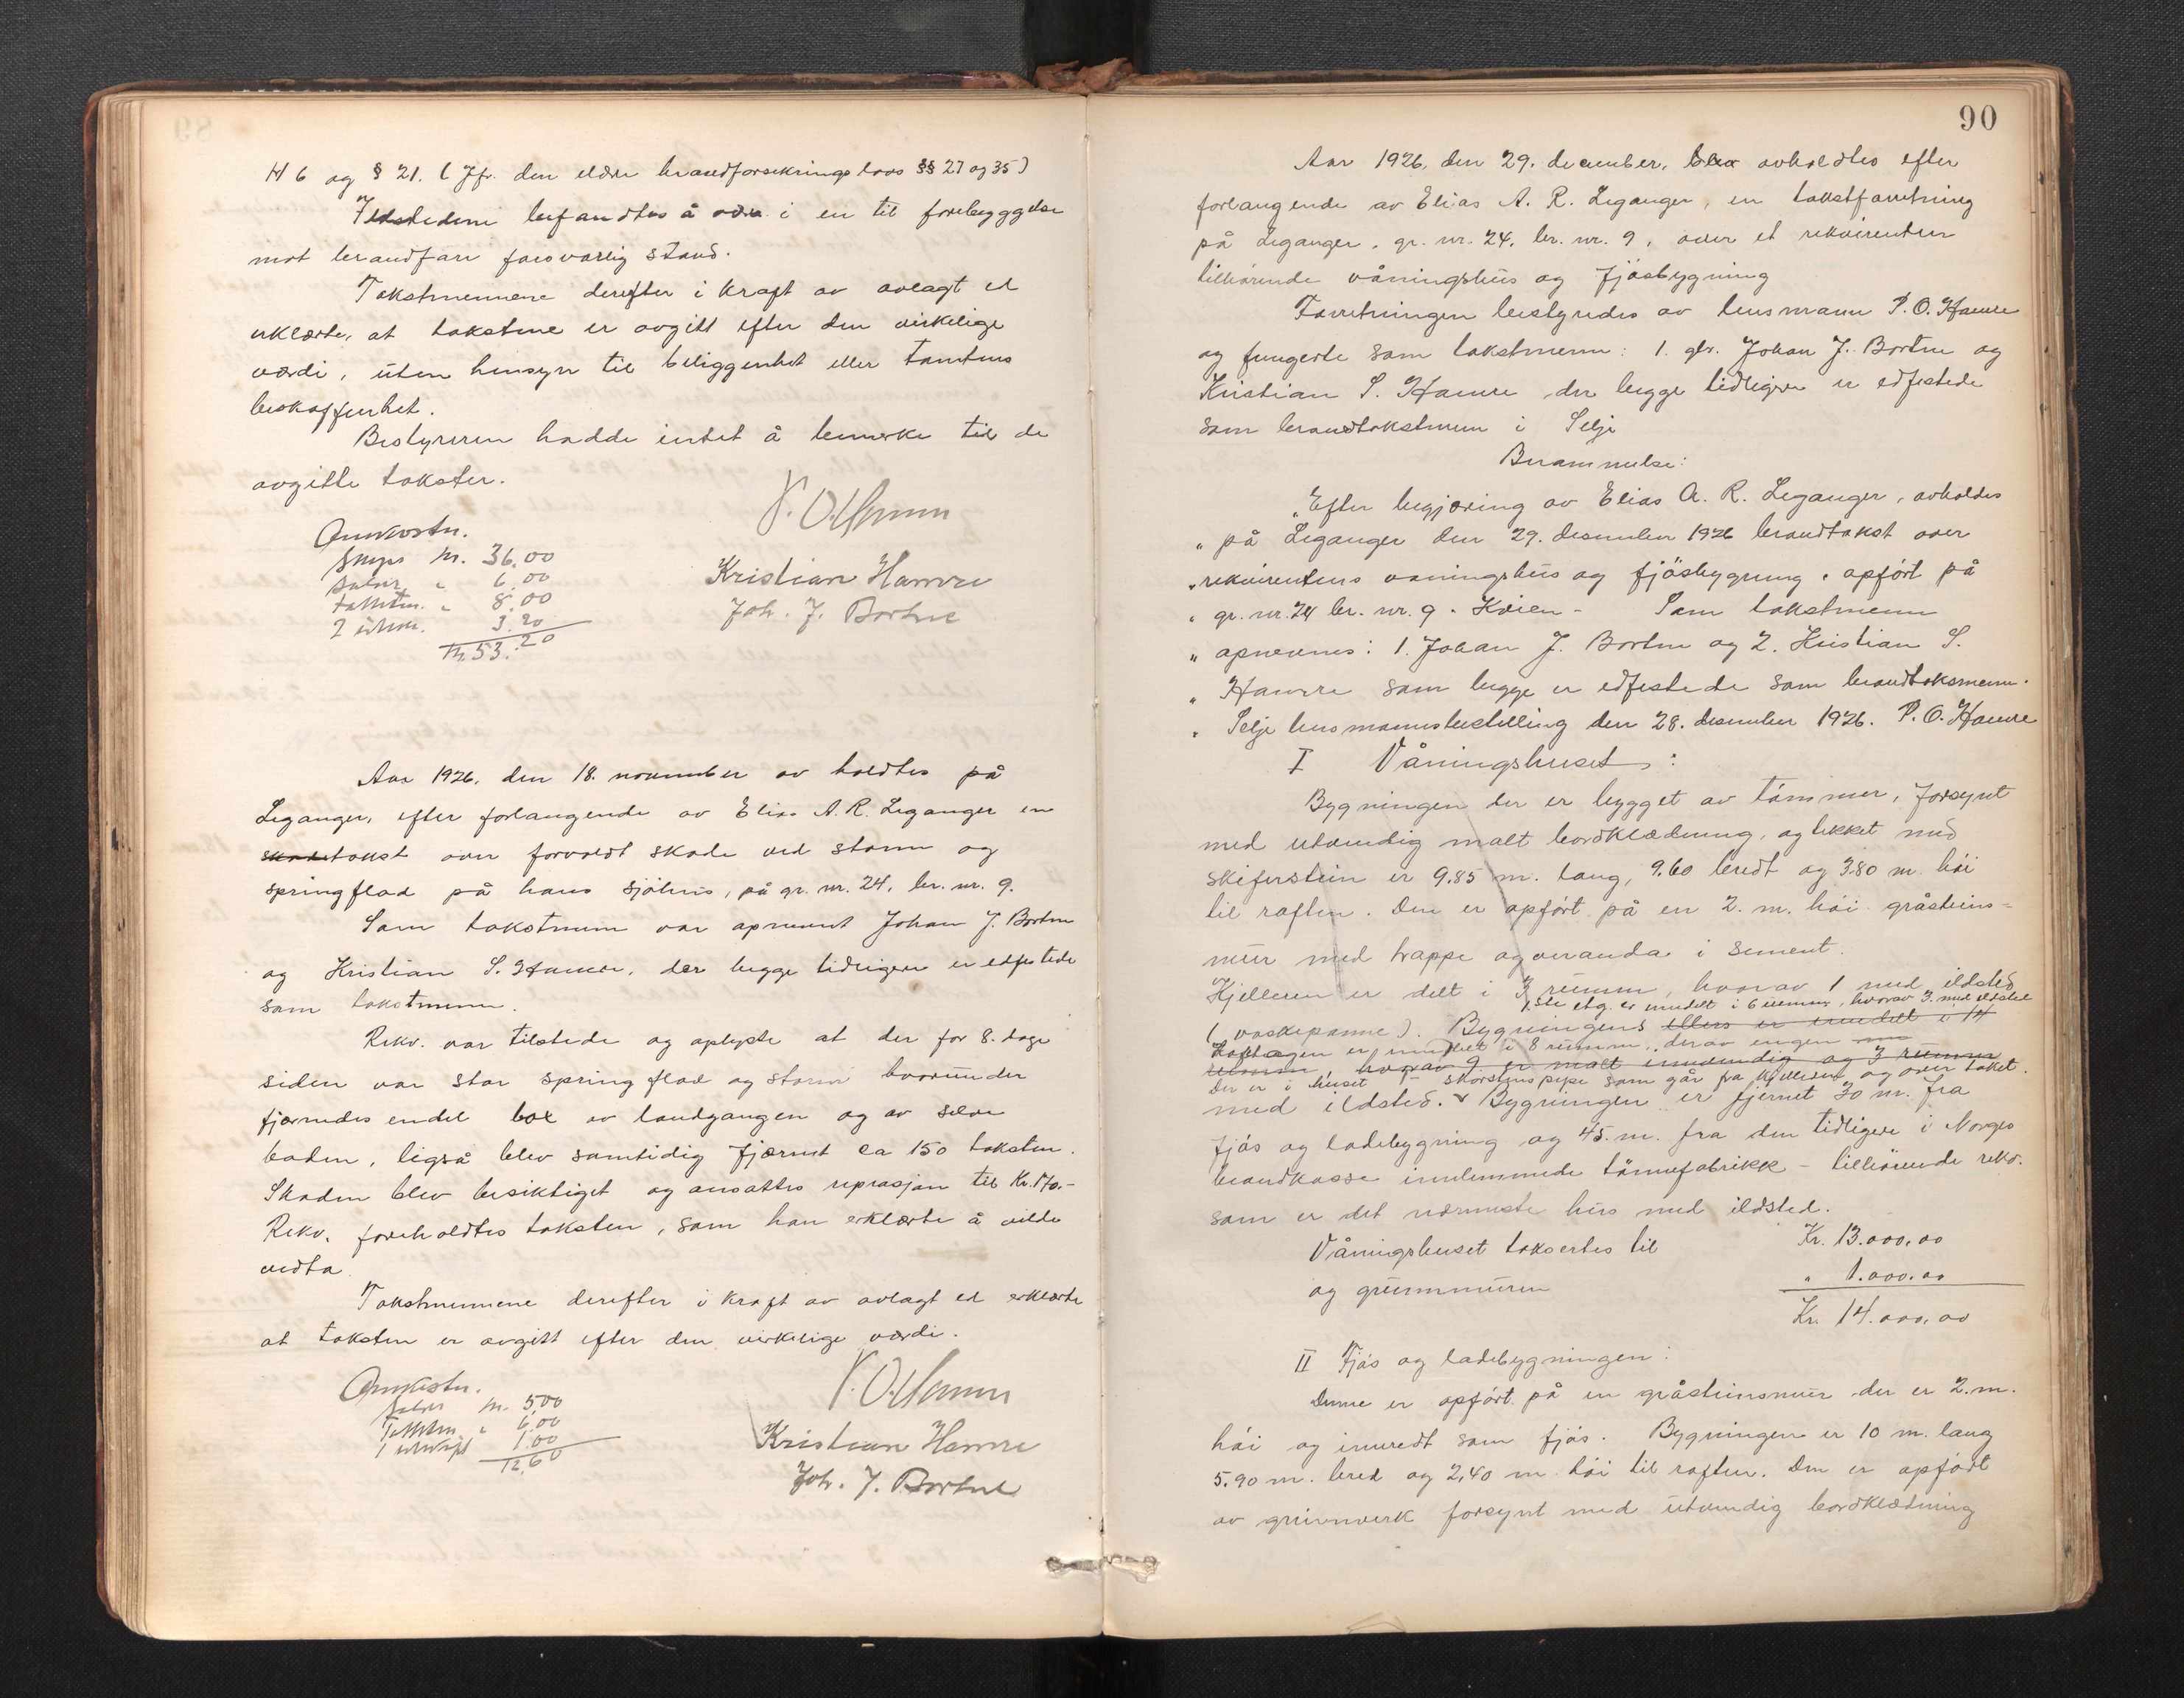 H 6 og § 21. (Jfr. den eldre brandforsikringslovs §§ 27 og 35)
Ildstedene befandtes å være i en til forebyggelse
mot brandfare forsvarlig stand.
Takstmennene derefter i kraft av avlagt ed
erklærte, at takstene er avgitt efter den virkelige
værdi, uten hensyn til beliggenhet eller tomtens
beskaffenhet.
Bestyreren hadde intet å bemerke til de
avgitte takster.
P. O. Hamre
Omkostn.
Skyss kr. 36,00
Salær " 6,00
takstm. " 8,00
2 utskr. 3.20
Kr. 53.20
Kristian Hamre
Joh. J. Bortne
Aar 1926, den 18. november avholdtes på
Leganger, efter forlangende av Elias A. R. Leganger en
skadetakst over forvoldt skade ved storm og
springflod på hans sjöhus, på gr. nr. 24, br. nr. 9.
Som takstmenn var opnevnt Johan J. Bortne
og Kristian S. Hamre, der begge tidligere er edfestede
som takstmenn.
Rekv. var tilstede og oplyste at der for 8. dage
siden var stor springflod og storm hvorunder
fjernedes endel bol av landgangen og av selve
boden, ligså blev samtidig fjernet ca 150 taksten.
Skaden blev besiktiget og ansattes reprasjon til Kr. 170.-
Rekv. foreholdtes taksten, som han erklærte å vilde
vedta
Takstmennene derefter i kraft av avlagt ed erklærte
at taksten er avgitt efter den virkelige værdi.
P. O. Hamre
Omkostn.
Salær kr. 5,00
Takstm. " 6,00
1 utskrift 1.00
12,60
Kristian Hamre
Joh. J. Bortne
90
Aar 1926, den 29. december, blev avholdtes efter
forlangende av Elias A. R. Leganger, en takstforretning
på Leganger, gr. nr. 24, br. nr. 9, over et rekvirenten
tilhörende våningshus og fjösbygning
Forretningen bestyredes av lensmann P. O. Hamre
og fungerte som takstmenn: 1. gbr. Johan J. Bortne og
Kristian S. Hamre der begge tidligere er edfestede
som brandtakstmenn i Selje
Berammelse:
"Efter begjæring av Elias A. R. Leganger, avholdes
" på Leganger den 29. desember 1926 brandtakst over
" rekvirentens vaningshus og fjösbygning, opfört på
" gr. nr. 24 br. nr. 9 - Kvien - Som takstmenn
" opnevnes: 1. Johan J. Bortne og 2. Kristian S.
" Hamre som begge er edfestede som brandtaksmenn.
" Selje lensmannsbestilling den 28. desember 1926. P. O. Hamre
I Våningshuset:
Bygningen der er bygget av tömmer, forsynt
med utvendig malt bordklædning, og tekket med
skiferstein er 9.85 m. lang, 9.60 bredt og 3.80 m. höi
til raften. Den er opfört på en 2. m. höi gråsteins-
mur med trappe og veranda i sement.
Kjelleren er delt i 3 rumm, hvorav 1 med ildsted
1ste etg. er inndelt i 6 rumm, hvorav 3. med ildsted
(vaskepanne). Bygningens ellers er inndelt i 14
Loftetagen er inndelt i 8 rumm, derav ingen
rumm, hvorav 9 er malt innvendig og 3 rumm
Der er i huset 1 skorstenspipe som går fra kjelleren og over taket.
med ildsted. Bygningen er fjernet 30 m. fra
fjös og ladebygning og 45. m. fra den tidligere i Norges
brandkasse innlemmede tönnefabrikk - tilhörende rekv.
som er det nærmeste hus med ildsted.
Våningshuset takseres til Kr. 13.000,00
og grunnmuren " 1.000.00
Kr. 14.000,00
II Fjös og ladebygningen:
Denne er opfört på en gråsteinsmur der er 2. m.
höi og innredt som fjös. Bygningen er 10 m. lang
5.90 m. bred og 2,40 m höi til raften. Den er opfört
av grinnverk forsynt med utvendig bordklædning